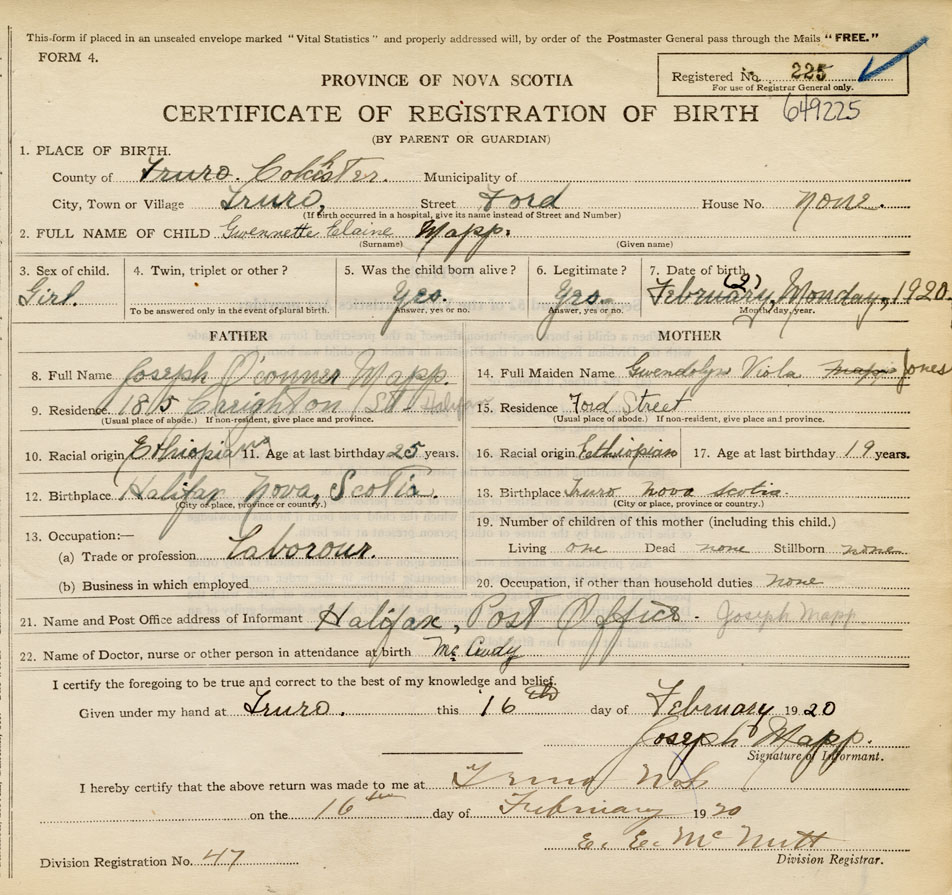 This form if placed in an unsealed envelope marked "Vital Statistics" and properly addressed will, by order of the Postmaster General pass through the Mails "FREE."
FORM 4.
Registered No. 225
For use of Registrar General only.
PROVINCE OF NOVA SCOTIA
CERTIFICATE OF REGISTRATION OF BIRTH 649225
(BY PARENT OR GUARDIAN)
1. PLACE OF BIRTH.
County of Truro. Colchester. Municipality of
City, Town or Village Truro, Street Ford House No. none.
(If birth occurred in a hospital, give its name instead of Street and Number)
2. FULL NAME OF CHILD Gwennette Elaine Mapp.
(Surname) (Given name)
3. Sex of child. 4. Twin, triplet or other? 5. Was the child born alive? 6. Legitimate? 7. Date of birth
Girl. Yes. Yes. February, (2) Monday, 1920.
To be answered only in the event of plural birth. Answer, yes or no. Answer, yes or no. Month, day, year.
FATHER MOTHER
8. Full Name Joseph O'conner Mapp.
14. Full Maiden Name Gwendolyn Viola Mapp Jones
9. Residence 18 1/5 Creighton St. Halifax
(Usual place of abode.) If non-resident, give place and province.
15. Residence Ford Street
(Usual place of abode.) If non-resident, give place and province.
10. Racial origin Ethiopian 11. Age at last birthday 25 years.
16. Racial origin Ethiopian 17. Age at last birthday 19 years.
12. Birthplace Halifax Nova, Scotia.
(City or place, province or country.)
18. Birthplace Truro nova scotia.
(City or place, province or country.)
13. Occupation:—
(a) Trade or profession Laborour.
(b) Business in which employed
19. Number of children of this mother (including this child.)
Living one Dead none Stillborn none
20. Occupation, if other than household duties none
21. Name and Post Office address of Informant Halifax, Post Office. Joseph Mapp
22. Name of Doctor, nurse or other person in attendance at birth Mc Curdy
I certify the foregoing to be true and correct to the best of my knowledge and belief.
Given under my hand at Truro. this 16th day of February 1920
Joseph Mapp.
Signature of Informant.
I hereby certify that the above return was made to me at Truro N.S
on the 16th day of February 1920
E. E. McNutt
Division Registration No. 47 Division Registrar.